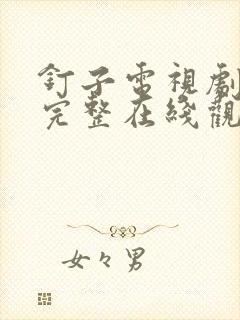 釘子電視劇
完整在綫觀
女々男